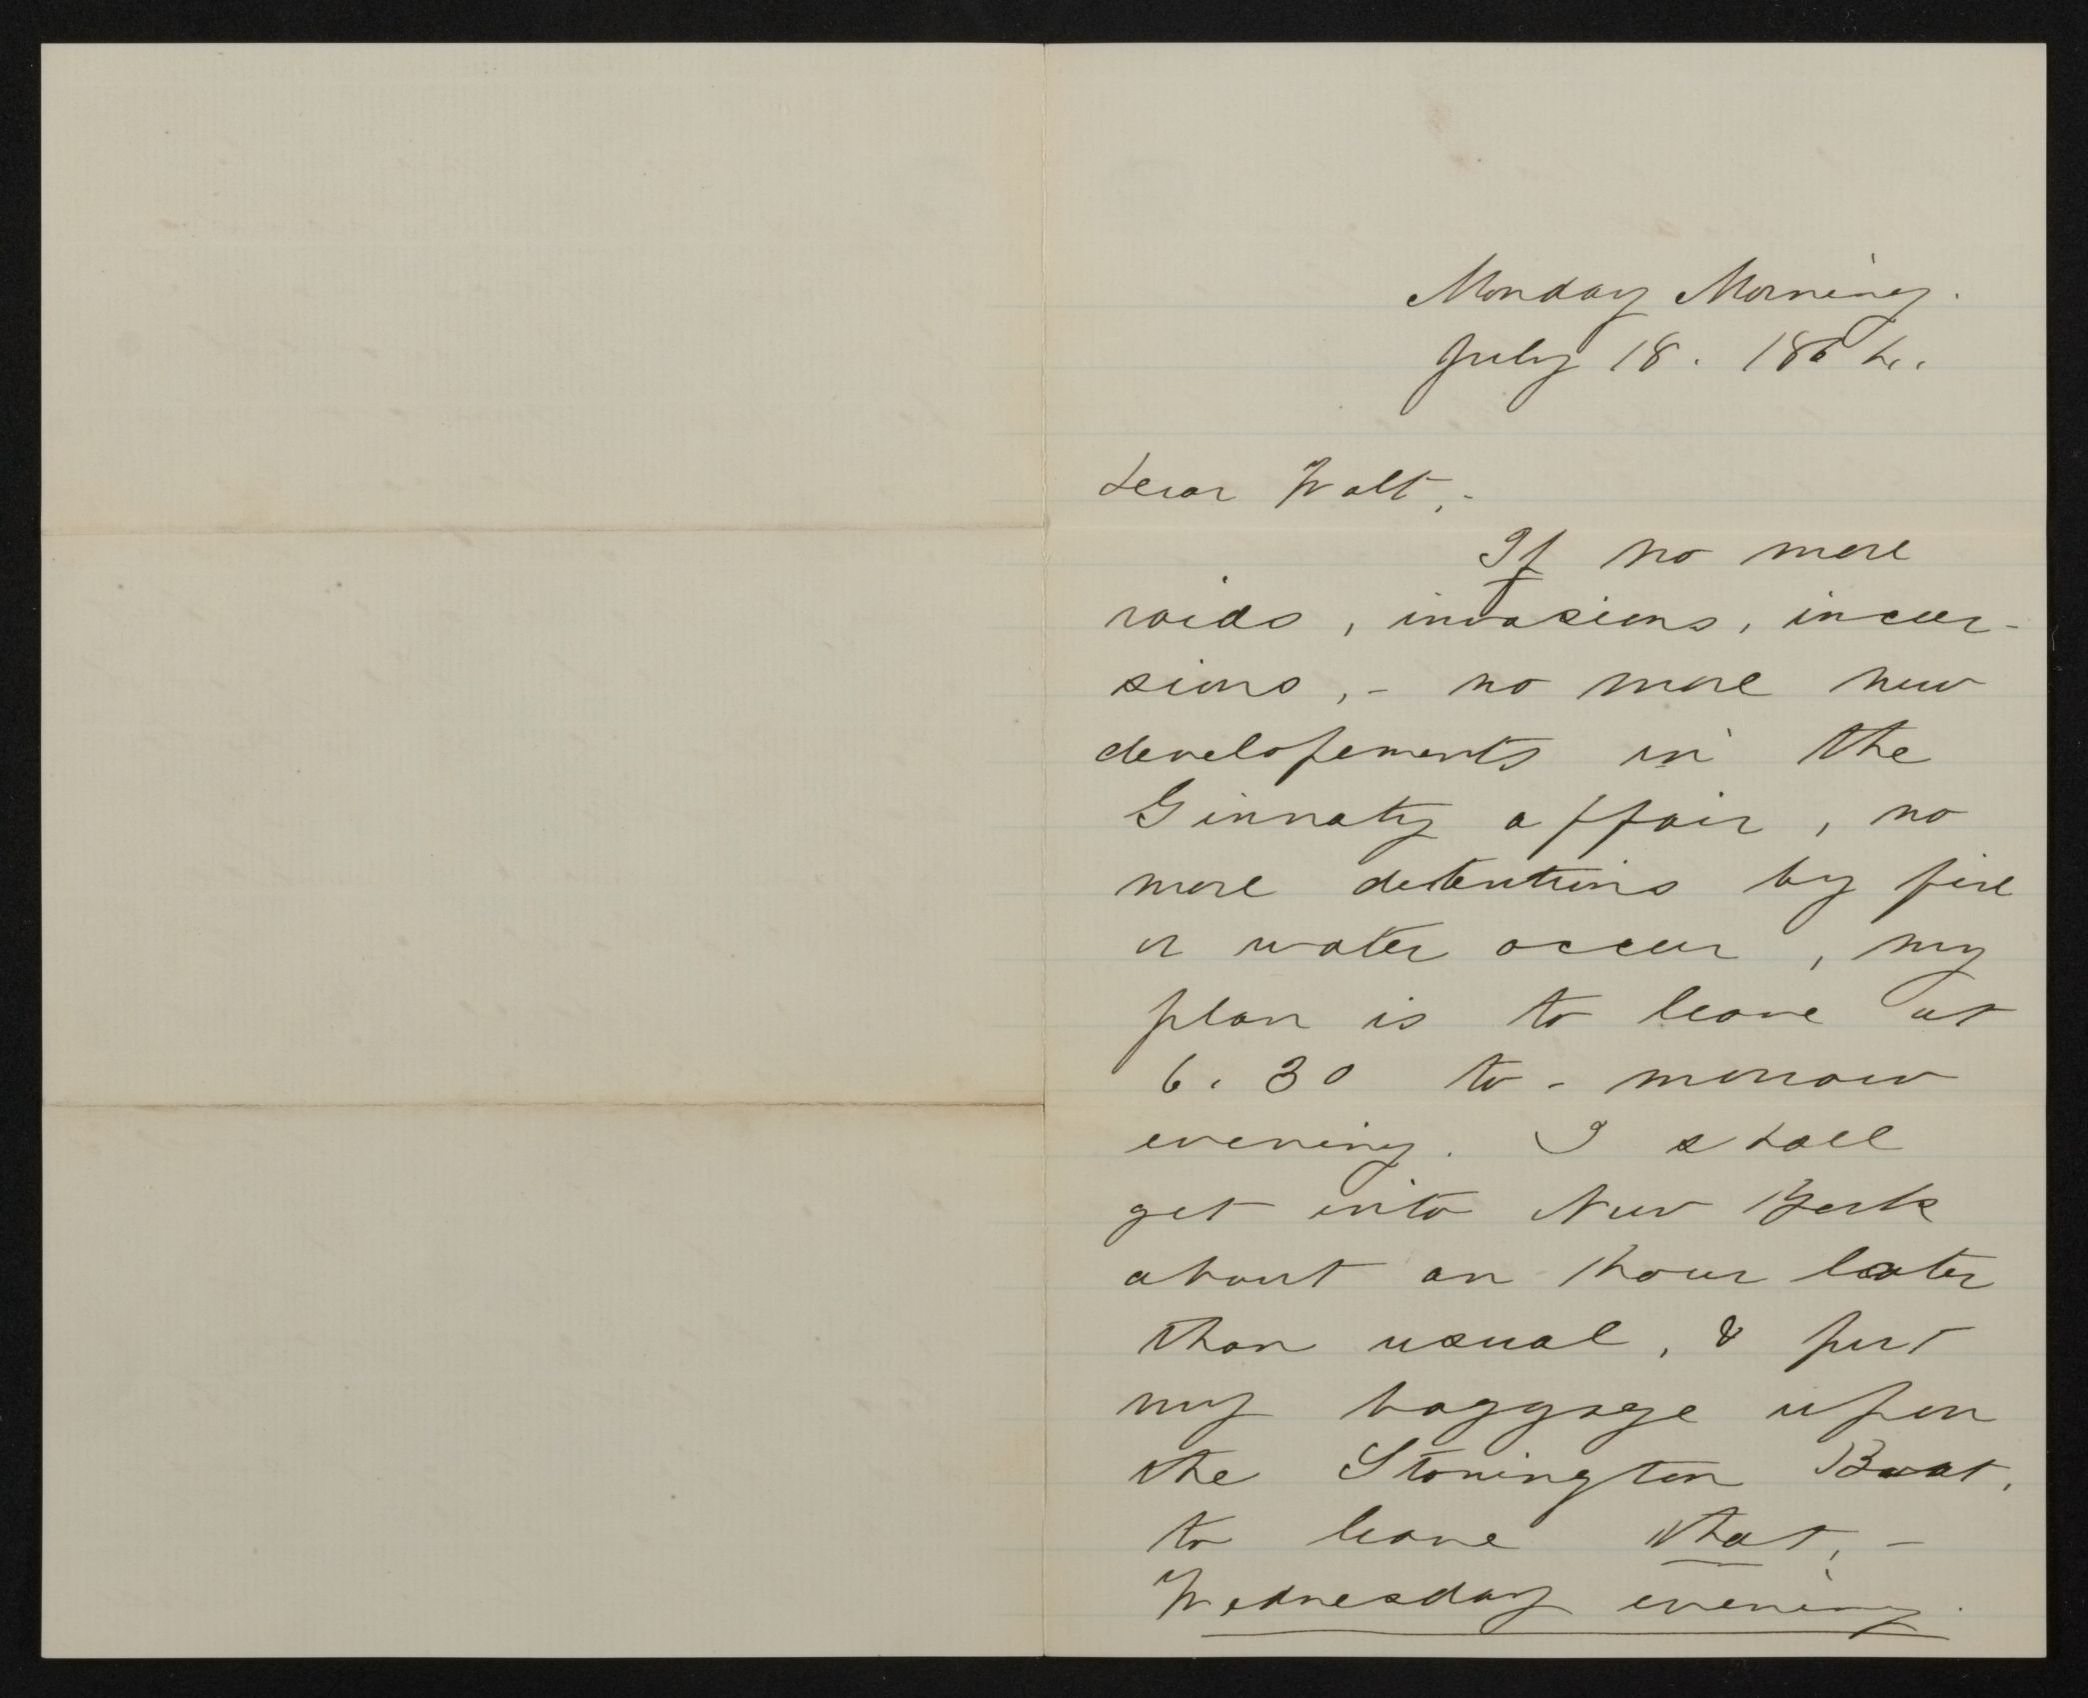 Monday Morning.
July 18. 1864.
Dear Walt,-
If no more
raids, invasions, incur-
sions,- no more new
developements in the
Ginnaty affair, no
more detentions by fire
or water occur, my
plan is to leave at
6.30 to-morrow
evening. I shall
get into New York
about an hour later
than usual, & put
my baggage upon
the Stonington Boat,
to leave that,-
Wednesday evening.